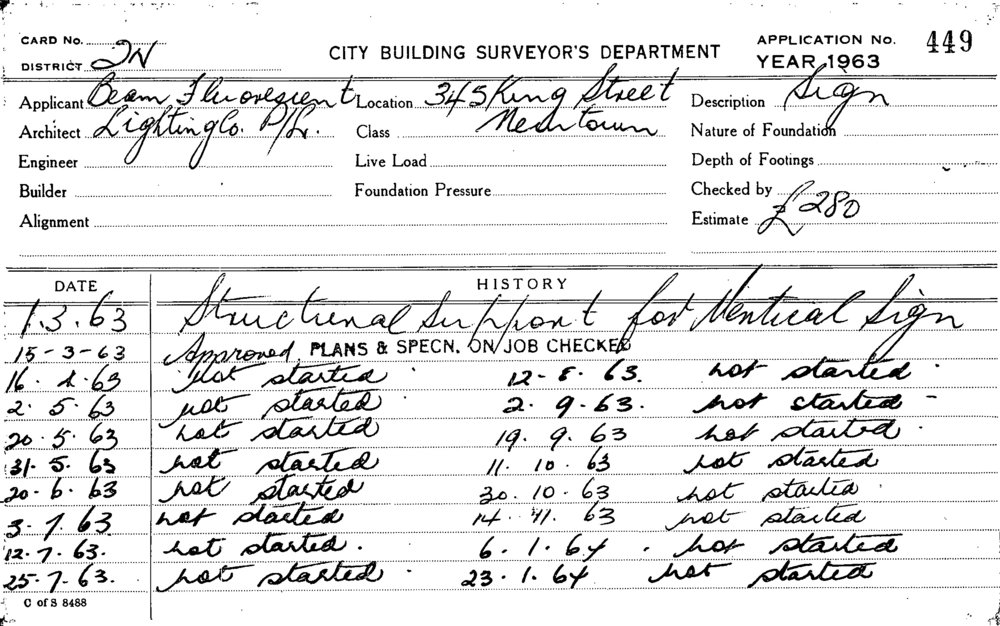 CARD No. CITY BUILDING SURVEYOR'S DEPARTMENT APPLICATION No. 449
DISTRICT 2N YEAR 1963
Applicant Beam Fluorescent Location 345 King Street Description Sign
Architect Lighting Co. P/L. Class Newtown Nature of Foundation
Engineer Live Load Depth of Footings
Builder Foundation Pressure Checked by
Alignment Estimate £280
DATE HISTORY
1.3.63 Structural Support for Vertical Sign
15-3-63 Approved PLANS & SPECN. ON JOB CHECKED
16.4.63 not started 12-8.63. not started
2.5.63 not started 2.9.63. not started
20.5.63 not started 19.9.63 not started
31.5.63 not started 11.10.63 not started
20.6.63 not started 30.10.63 not started
3.7.63 not started 14.11.63 not started
12.7.63. not started. 6.1.64. not started
25.7.63. not started 23.1.64 not started
C of S 8488